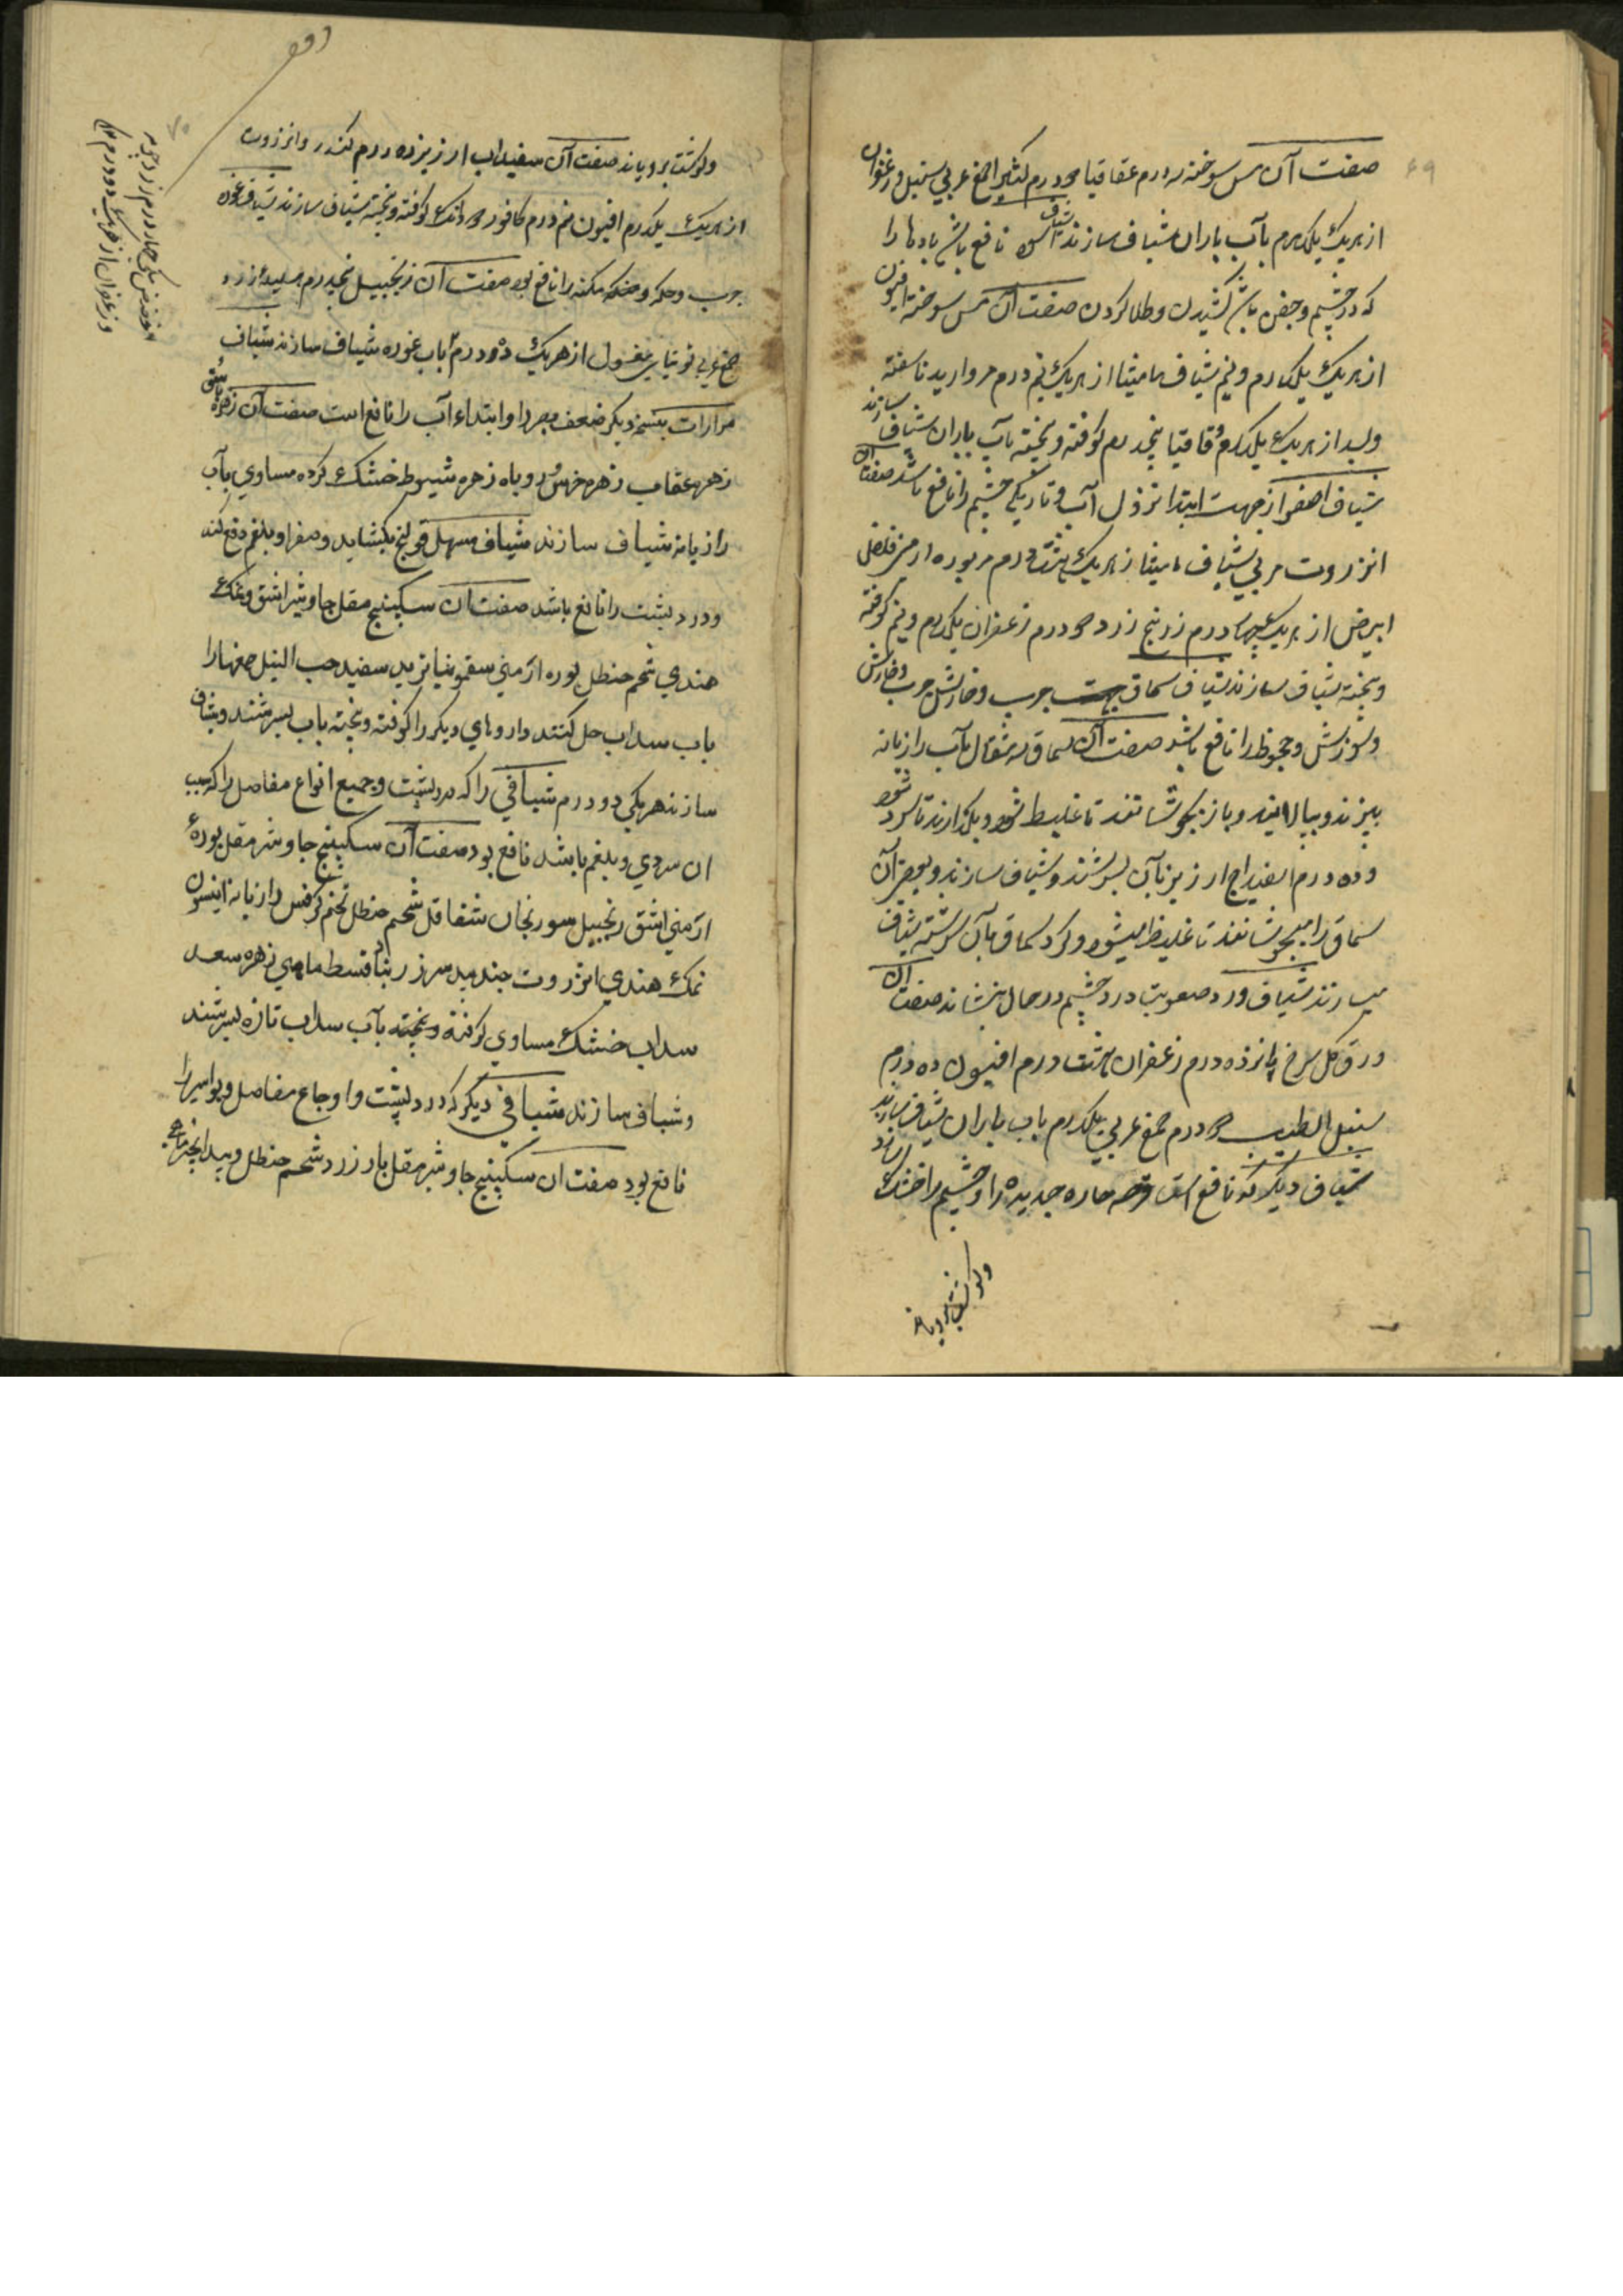 ۶۹
صفت آن مس سوخته سه درم عقاقیا دو درم کثیرا صمغ عربی سنبل زعفران
از هریک یکدرم بآب باران شیاف سازند شیاف نافع باشد بادها را
که در چشم و جفن باشد کشیدن و طلا کردن صفت آن مس سوخته افیون
از هریک یکدرم و نیم شیاف مامیثا از هریک نیم درم مروارید ناسفته
و بسد از هریک یکدرم قاقیا پنجدرم کوفته و بیخته بآب باران شیاف سازند
شیاف اصفر از جهت ابتدا نزول آب و تاریکی چشم را نافع باشد صفت آن
انزروت مربی شیاف مامیثا از هریک هشت درم بوره ارمنی فلفل
ابیض از هریک چهار درم زرنیخ زرد دو درم زعفران یکدرم و نیم کوفته
و بیخته شیاف سازند شیاف سماق جهت جرب و خارش جرب و خارش
و سوزش و جحوظ را نافع باشد صفت آن سماق مثقال بآب رازیانه
بپزند و بپالایند و باز بجوشانند تا غلیظ شود و بگذارند تا سرد شود
و ده درم اسفیداج ارزیز بآن بسرشند و شیاف سازند و بعضی آن
سماق را میجوشانند تا غلیظ میشود و کرد سماق بآن سرشته شیاف
میسازند شیاف ورد صعوبت درد چشم در حال بنشاند صفت آن
ورق کل سرخ پانزده درم زعفران هشت درم افیون ده درم
سنبل الطیب دو درم صمغ عربی یکدرم باب باران شیاف سازند
شیاف دیگر که نافع است قرحه حاره جدیده را و چشم را خشک سازد
و گوشت برویاند
۷۰
و گوشت برویاند صفت آن سفیداب ارزیز ده درم کندر و انزروت
از هریک یکدرم افیون نیم درم کافور دو دانک کوفته و بیخته شیاف سازند شیاف غوره
جرب و حکه و کمنه را نافع بود صفت آن زنجبیل پنجدرم هلیله زرد
صمغ عربی توتیای مغسول از هریک دو درم باب غوره شیاف سازند شیاف
مرارات بنسخه دیگر ضعف بصر را و ابتداء آب را نافع است صفت آن زهره
زهره عقاب زهره خرس روباه زهره شبوط خشک کرده مساوی بآب
رازیانه شیاف سازند شیاف مسهل قولنج بکشاید و صفرا و بلغم دفع کند
و درد پشت را نافع باشد صفت آن سکبینج مقل جاوشیر اشق و نمک
هندی شحم حنظل بوره ارمنی سقمونیا تربد سفید حب النیل صمغها را
باب سداب حل کنند داروهای دیگر را کوفته و بیخته باب بسرشند و شیاف
سازند هریکی دو درم شیافی را که درد پشت و جمیع انواع مفاصل را که سبب
ان سردی و بلغم باشد نافع بود صفت آن سکبینج جاوشیر مقل بورۀ
ارمنی اشق زنجبیل سورنجان شقاقل شحم حنظل تخم کرفس رازیانه انیسون
نمک هندی انزروت جندبیدستر قسط ماهی زهره سعد
سداب خشک مساوی کوفته و بیخته بآب سداب تازه بسرشند
و شیاف سازند شیافی دیگر که درد پشت و اوجاع مفاصل و بواسیر را
نافع بود صفت ان سکبینج جاوشیر مقل بارزد شحم حنظل و بیدانجیر
و زعفران از هریک دو درم